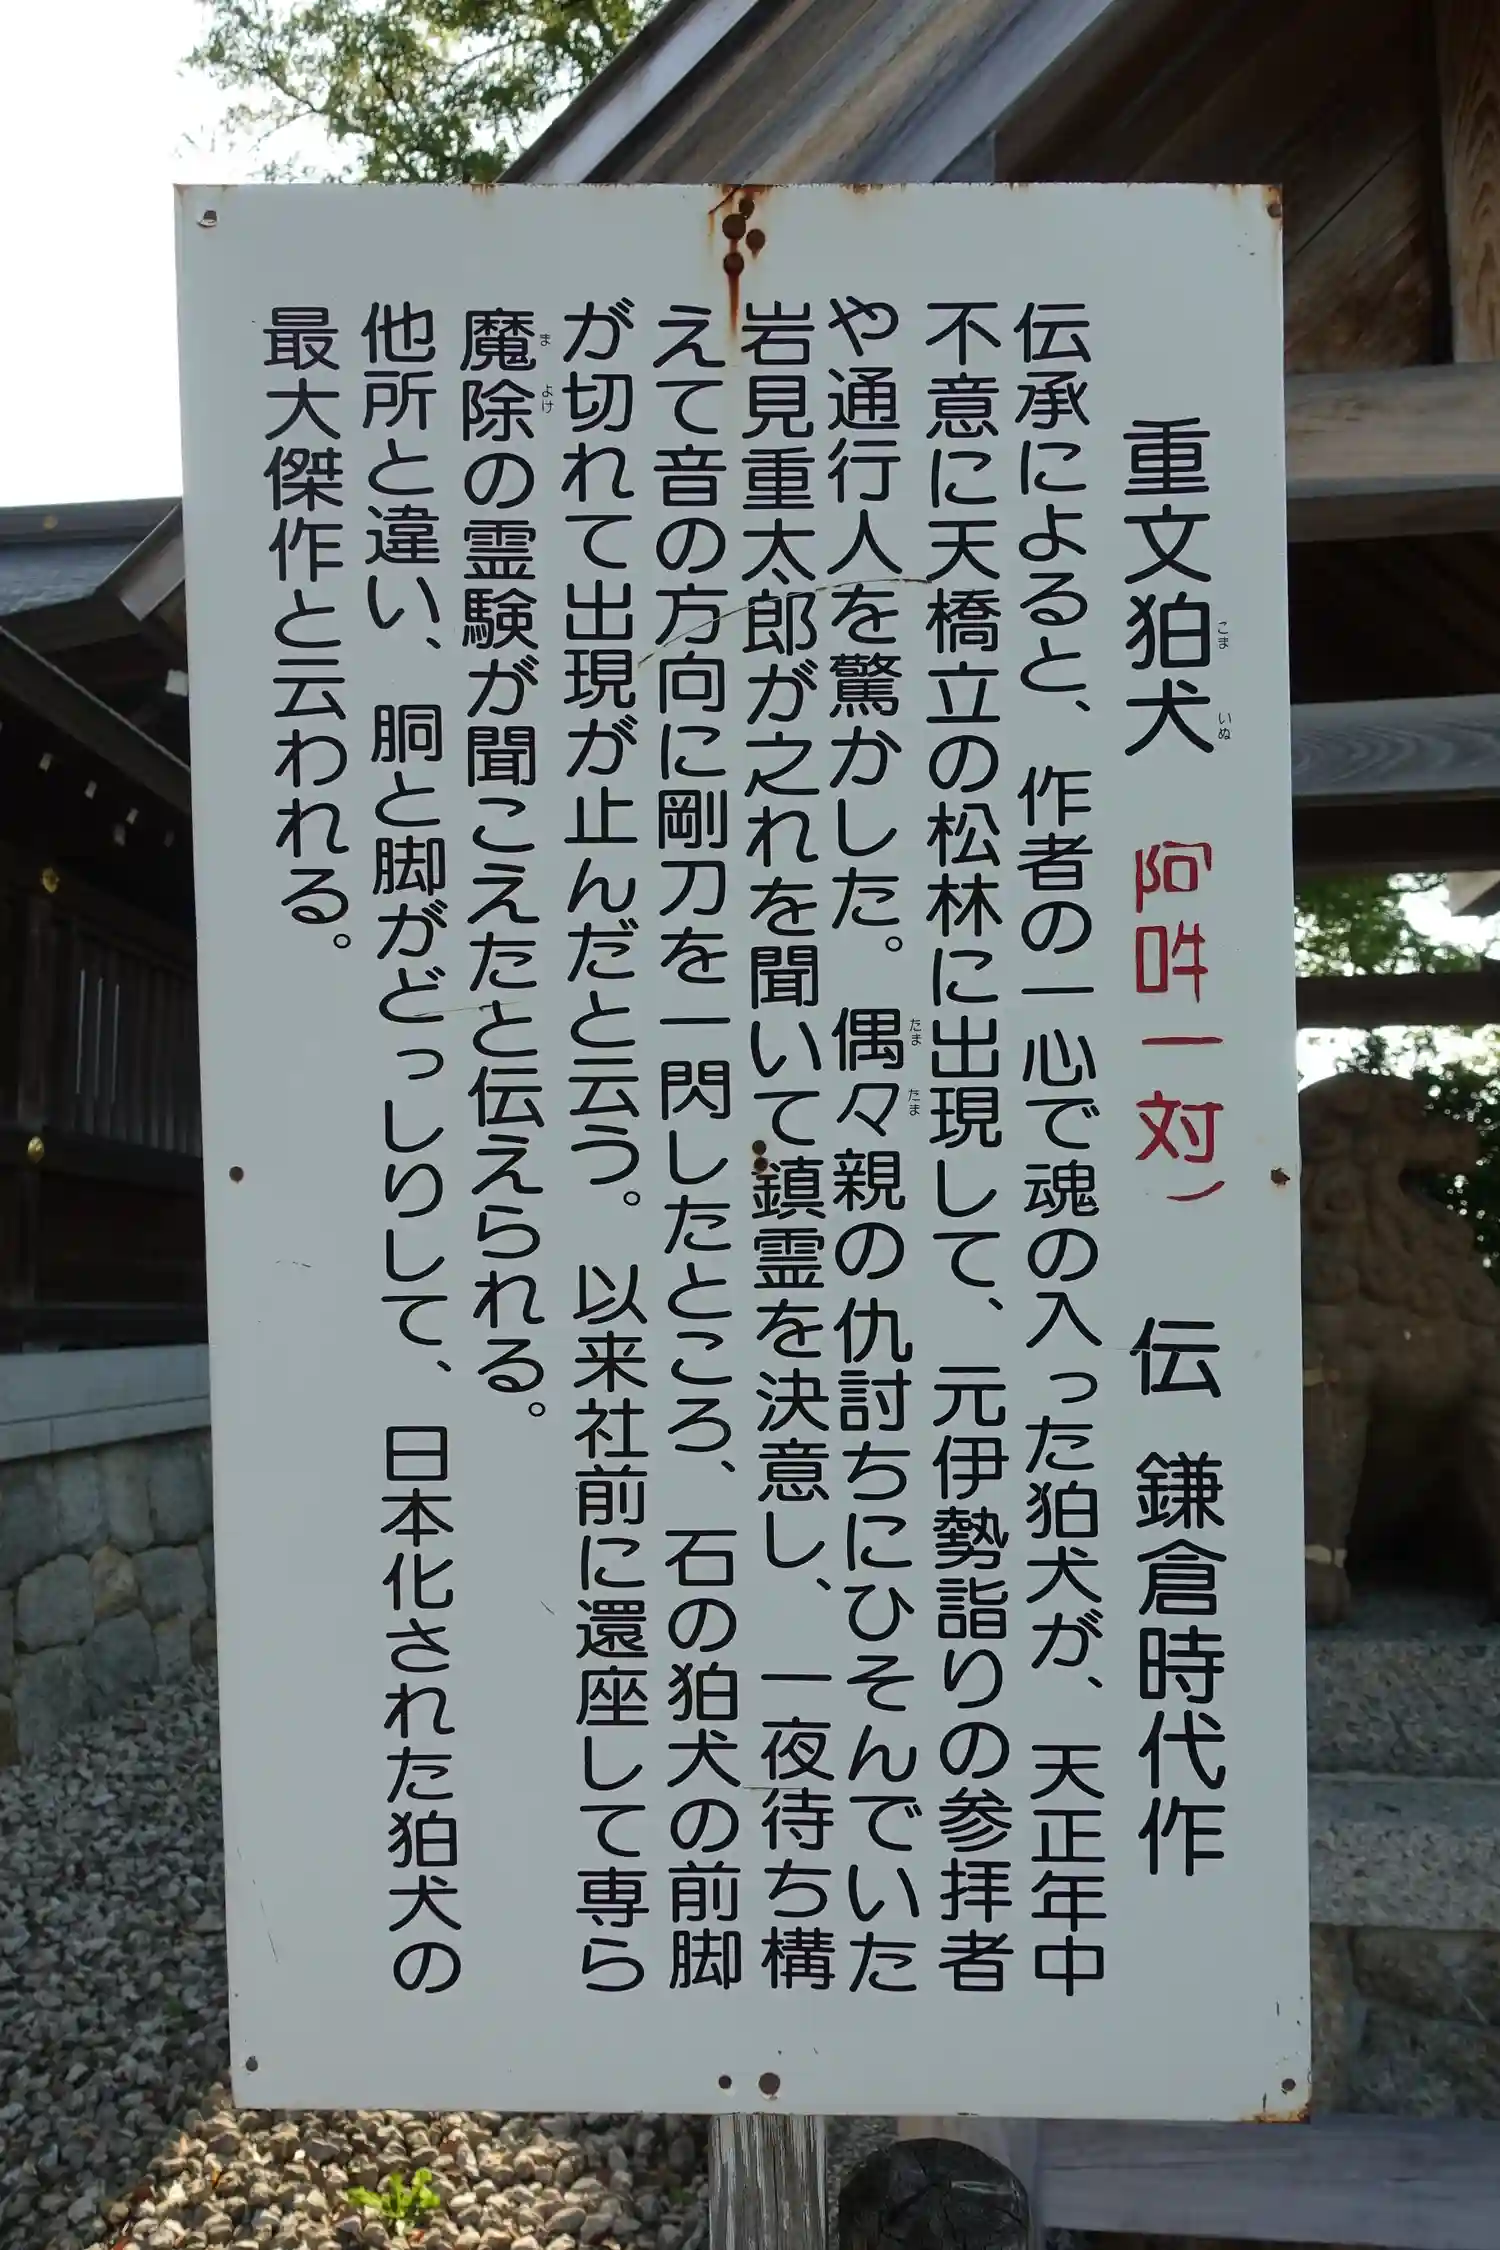 重文狛犬 阿吽一対 伝 鎌倉時代作
こま いぬ
伝承によると、作者の一心で魂の入った狛犬が、天正年中
不意に天橋立の松林に出現して、元伊勢詣りの参拝者
や通行人を驚かした。偶々親の仇討ちにひそんでいた
たま たま
岩見重太郎が之れを聞いて鎮霊を決意し、一夜待ち構
えて音の方向に剛刀を一閃したところ、石の狛犬の前脚
が切れて出現が止んだと云う。以来社前に還座して専ら
魔除の霊験が聞こえたと伝えられる。
ま よけ
他所と違い、胴と脚がどっしりして、日本化された狛犬の
最大傑作と云われる。